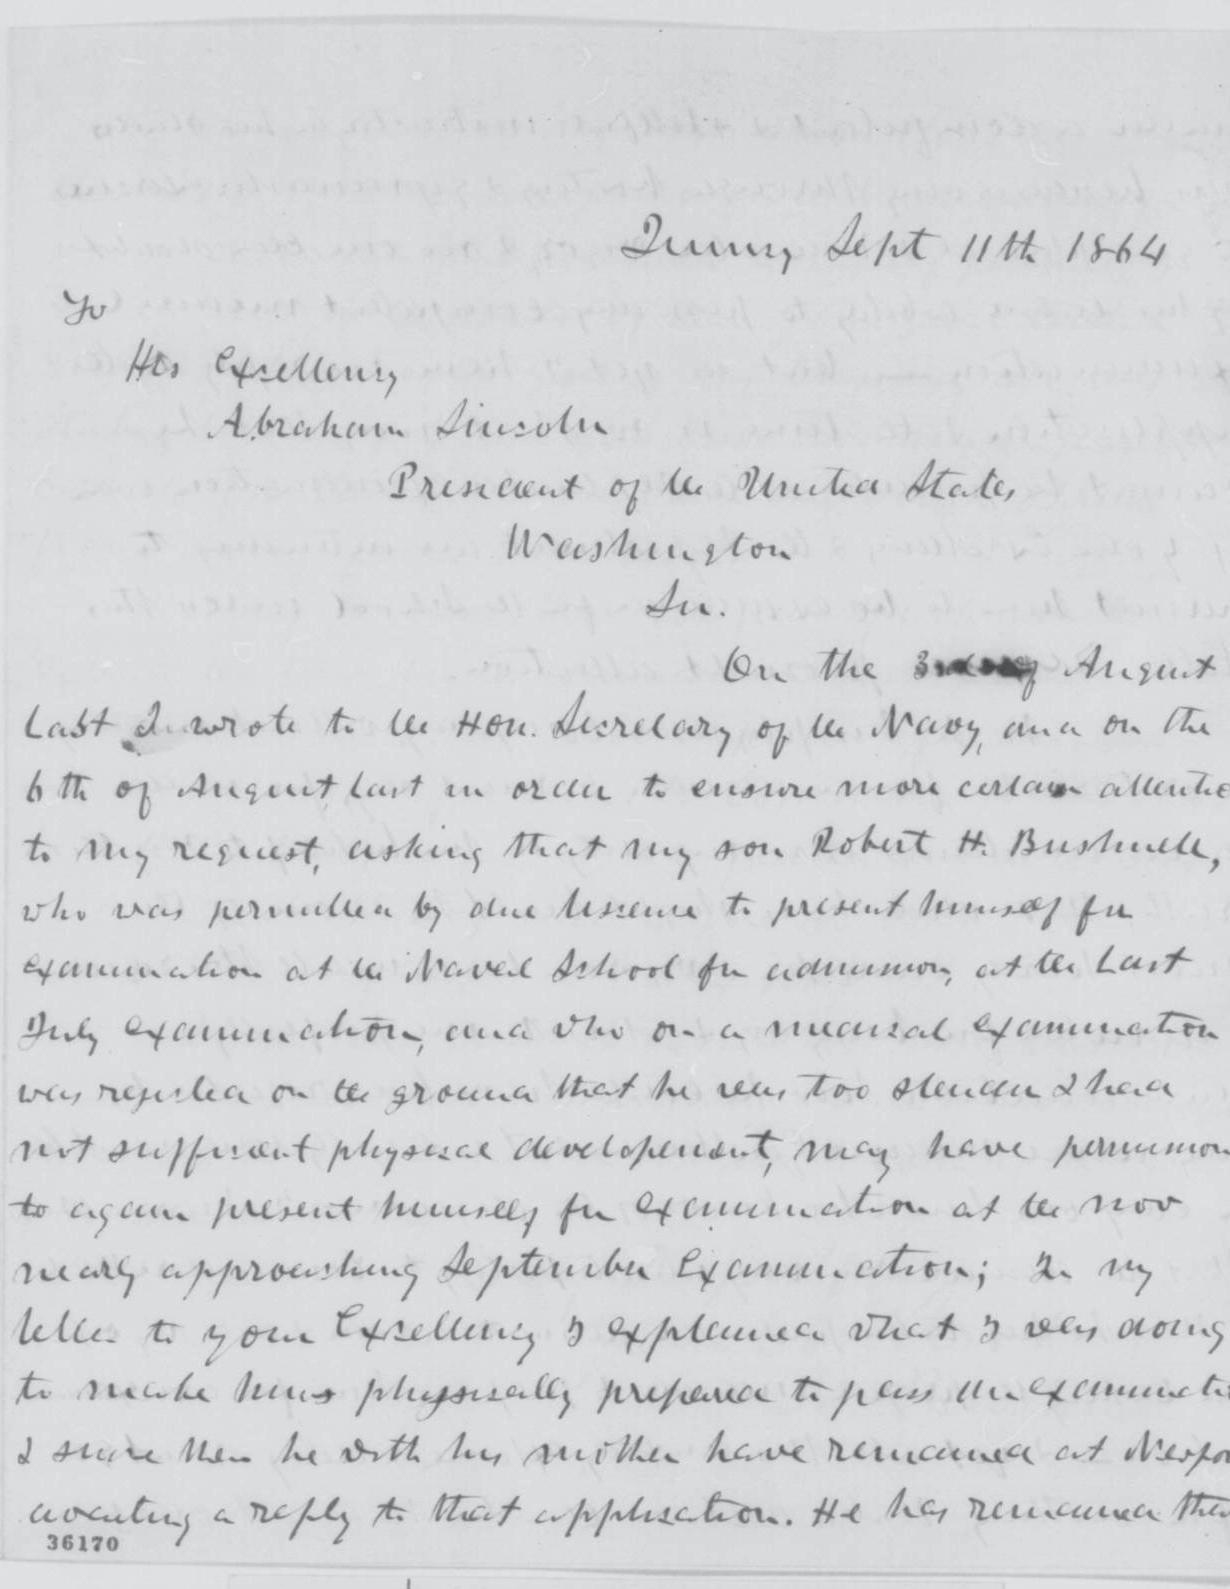 Quincy Sept 11th 1864
To
His Excellency
Abraham Lincoln
President of the United States,
Washington
Sir.
On the 3rd of August
last I wrote to the Hon. Secretary of the Navy, and on the
6th of August last in order to ensure more certain attentio
to my request, asking that my son Robert H. Bushnell,
who was permitted by due license to present himself for
examination at the Naval School for admission, at the last
July examination, and who on a medical examination
was rejected on the ground that he was too slender & had
not sufficient physical developement, may have permission
to again present himself for examination at the now
nearly approaching September Examination; In my
letter to your Excellency I explained what I was doing
to make him physically prepared to pass an examinati
& since then he with his mother have remained at Newpor
awaiting a reply to that application. He has remained ther
36170